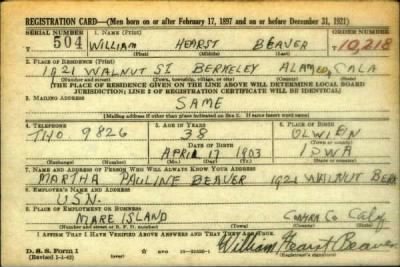 REGISTRATION CARD—(Men born on or after February 17, 1897 and on or before December 31, 1921)
SERIAL NUMBER 1. NAME (Print) ORDER NUMBER
504 WILLIAM HEARST BEAVER 10,218
(First) (Middle) (Last)
2. PLACE OF RESIDENCE (Print)
1921 WALNUT ST BERKELEY ALAMEDA, CALA
(Number and street) (Town, township, village, or city) (County) (State)
[THE PLACE OF RESIDENCE GIVEN ON THE LINE ABOVE WILL DETERMINE LOCAL BOARD
JURISDICTION; LINE 2 OF REGISTRATION CERTIFICATE WILL BE IDENTICAL]
3. MAILING ADDRESS
SAME
[Mailing address if other than place indicated on line 2. If same insert word same]
4. TELEPHONE 5. AGE IN YEARS 6. PLACE OF BIRTH
THO 9826 38 OLWIEN
DATE OF BIRTH (Town or county)
APRIL 17 1903 IOWA
(Exchange) (Number) (Mo.) (Day) (Yr.) (State or country)
7. NAME AND ADDRESS OF PERSON WHO WILL ALWAYS KNOW YOUR ADDRESS
MARTHA PAULINE BEAVER 1921 WALNUT BERK
8. EMPLOYER'S NAME AND ADDRESS
U.S.N.
9. PLACE OF EMPLOYMENT OR BUSINESS
MARE ISLAND Co
(Number and street or R. F. D. number) (Town) (County) (State)
I AFFIRM THAT I HAVE VERIFIED ABOVE ANSWERS AND THAT THEY ARE TRUE.
D. S. S. Form 1
(Revised 1-1-42) (over) William Hearst Beaver